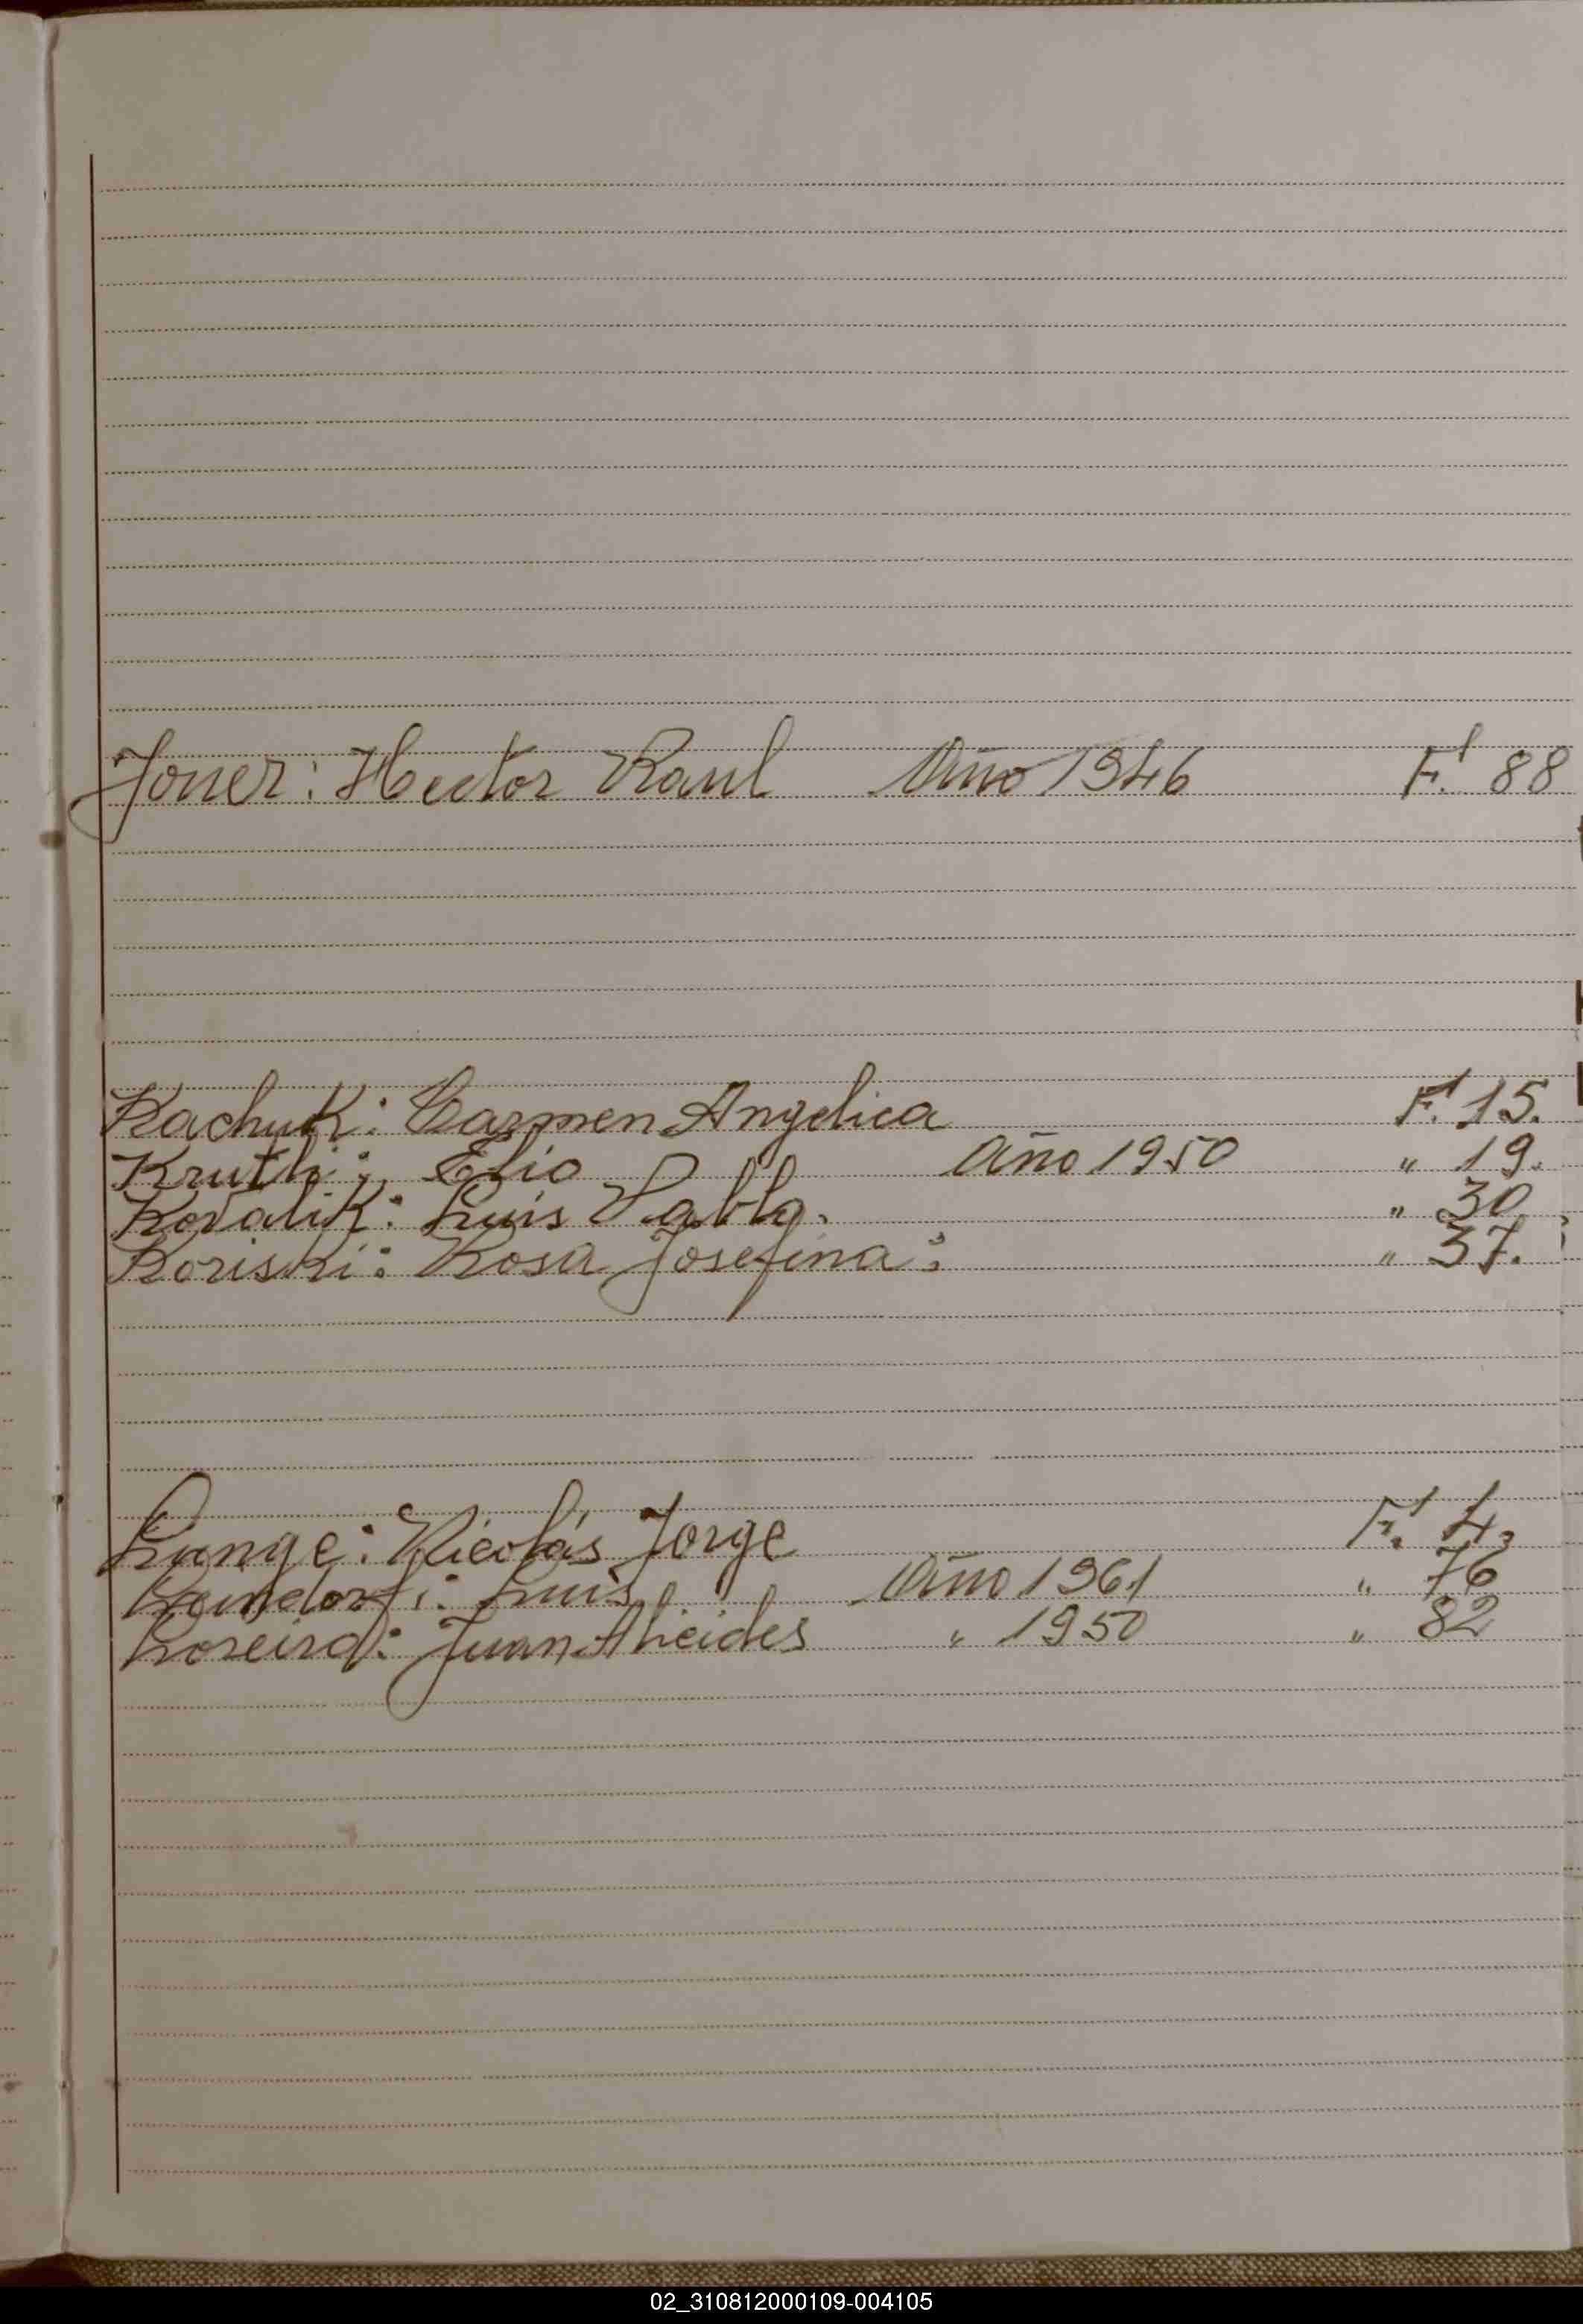 Joner: Hector Raul Año 1946 F! 88
Kachuk: Carmen Angelica F! 15.
Krutli: Elio Año 1950 " 19.
Kovalik: Luis Pablo. " 30
Koriski: Rosa Josefina: " 37.
Lange: Nicolás Jorge F! 4.
Luis Año 1961 " 76
Loreiro: Juan Alcides " 1950 " 82
02_310812000109-004105